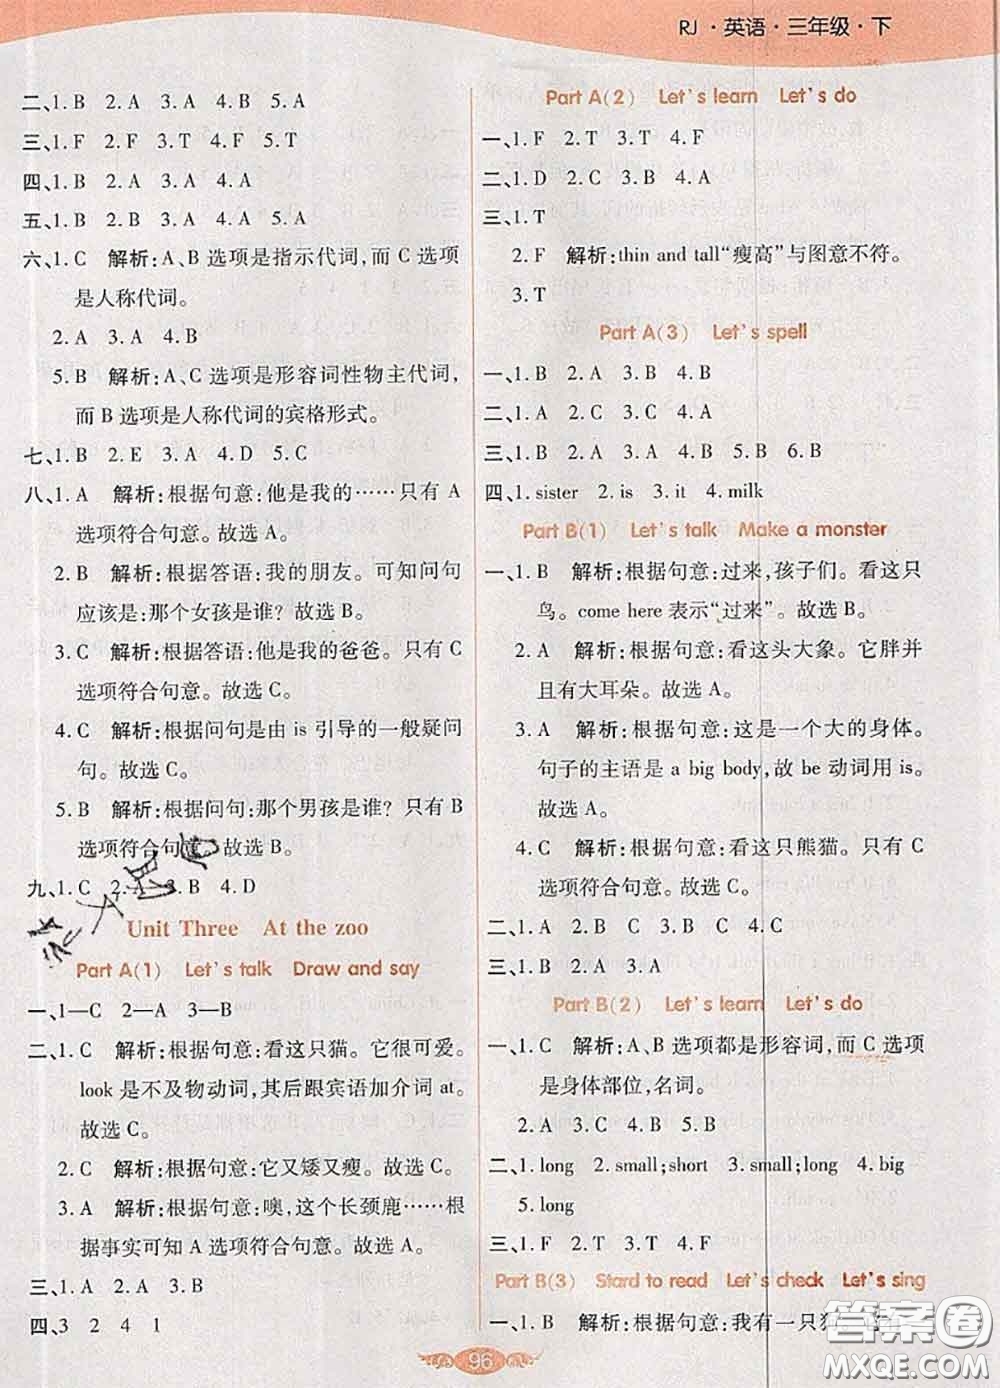 RJ·英语·三年级·下
二、1. B 2. A 3. A 4. B 5. A
三、1. F 2. F 3. T 4. F 5. T
四、1. B 2. A 3. A 4. A
五、1. B 2. B 3. A 4. A 5. A
六、1. C 解析:A、B 选项是指示代词,而 C 选项
是人称代词。
2. A 3. A 4. B
5. B 解析:A、C 选项是形容词性物主代词,
而 B 选项是人称代词的宾格形式。
七、1. B 2. E 3. A 4. D 5. C
八、1. A 解析:根据句意:他是我的……只有 A
选项符合句意。故选 A。
2. B 解析:根据答语:我的朋友。可知问句
应该是:那个女孩是谁? 故选 B。
3. C 解析:根据答语:他是我的爸爸。只有 C
选项符合句意。故选 C。
4. C 解析:根据问句是由 is 引导的一般疑问
句。故选 C。
5. B 解析:根据问句:那个男孩是谁? 只有 B
选项符合句意。故选 B。
九、1. C 2. A 3. B 4. D
Unit Three At the zoo
Part A(1) Let's talk Draw and say
一、1—C 2—A 3—B
二、1. C 解析:根据句意:看这只猫。它很可爱。
look 是不及物动词,其后跟宾语加介词 at。
故选 C。
2. C 解析:根据句意:它又矮又瘦。故选 C。
3. A 解析:根据句意:噢,这个长颈鹿……根
据事实可知 A 选项符合句意。故选 A。
三、1. A 2. A 3. B
四、3 2 4 1
Part A(2) Let's learn Let's do
一、1. F 2. T 3. T 4. F
二、1. D 2. C 3. B 4. A
三、1. T
2. F 解析:thin and tall“瘦高”与图意不符。
3. T
Part A(3) Let's spell
一、1. B 2. A 3. B 4. B
二、1. A 2. C 3. C 4. A
三、1. B 2. A 3. B 4. A 5. B 6. B
四、1. sister 2. is 3. it 4. milk
Part B(1) Let's talk Make a monster
一、1. B 解析:根据句意:过来,孩子们。看这只
鸟。come here 表示“过来”。故选 B。
2. A 解析:根据句意:看这头大象。它胖并
且有大耳朵。故选 A。
3. A 解析:根据句意:这是一个大的身体。
句子的主语是 a big body,故 be 动词用 is。
故选 A。
4. C 解析:根据句意:看这只熊猫。故 C 选
项符合句意。故选 C。
二、1. A 2. B 3. C 4. C 5. C
三、1. B 2. A 3. A 4. B
Part B(2) Let's learn Let's do
一、1. C 解析:A、B 选项都是形容词,而 C 选项
是身体部位,名词。
2. A 3. C 4. B 5. B
二、1. long 2. small;short 3. small;long 4. big
5. long
三、1. F 2. T 3. T 4. F
Part B(3) Stard to read Let's check Let's sing
一、1. B 解析:根据句意:我有一只猫。
96
答案圈
MXQE.COM